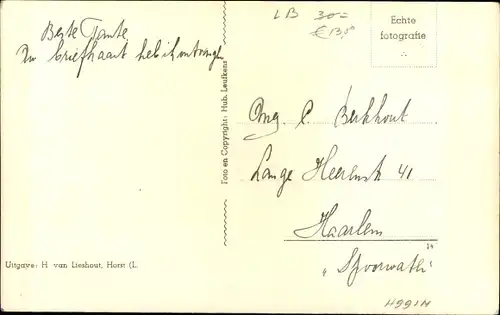 LB 30=
€ 13,50
Echte
fotografie
Beste Tante
Uw briefkaart heb ik ontvangen
Foto en Copyright: Hub. Leufkens
C. Berkhout
Lange Heerenstr 41
Haarlem
Uitgave: H. van Lieshout, Horst (L.